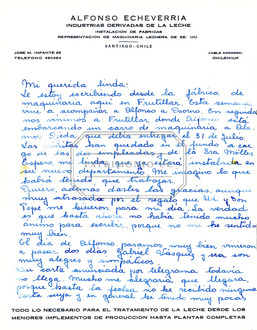 ALFONSO ECHEVERRIA
INDUSTRIAS DERIVADAS DE LA LECHE
INSTALACION DE FABRICAS
REPRESENTACION DE MAQUINARIA LECHERA DE EE. UU.
SANTIAGO-CHILE
JOSE M. INFANTE 85
TELEFONO
CABLE ADDRESS:
CHILEMILK
Mi querida linda:
Le estoy escribiendo desde la fábrica de
maquinaria aquí en Frutillar. Esta semana
vine a acompañar a Alfonso a Osorno. En seguida
nos vinimos a Frutillar donde Alfonso está
embarcando un carro de maquinaria a
que deben entregar el 31 de julio.
Las han quedado en el fundo a car
go de las dos empleadas y de la Sra Miller.
Espero mi linda que ya estará instalada en
su nuevo departamento. Me imagino lo que
habrá tenido que trabajar.
Quiero, además darles las gracias, aunque
muy atrasada por el regalo que Ud. y Don
Pepe me hicieron para mi día. La verdad
es que hasta ahora no había tenido mucho
ánimo para escribir, porque no me he sentido
muy bien.
El día de Alfonso pasamos muy bien vinieron
a pasar dos días Gabriel Vasquez y sra son
muy alegres y simpáticos
Su carta anunciada por telegrama todavía
no llega. Mucho me alegraría que llegara,
porque hasta la fecha, no he recibido ninguna
carta suya y en general he tenido muy pocas
TODO LO NECESARIO PARA EL TRATAMIENTO DE LA LECHE DESDE LOS
MENORES IMPLEMENTOS DE PRODUCCION HASTA PLANTAS COMPLETAS